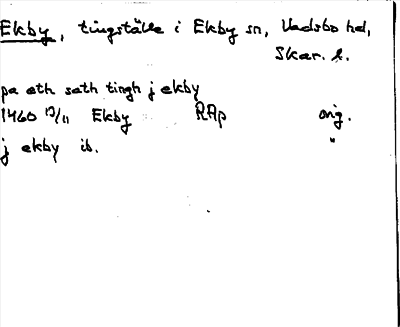 Ekby, tingställe i Ekby sn, Vadsbo hd,
Skar. l.
pa eth sath tingh j ekby
1460 13/11 Ekby RAp orig.
j ekby ib. "